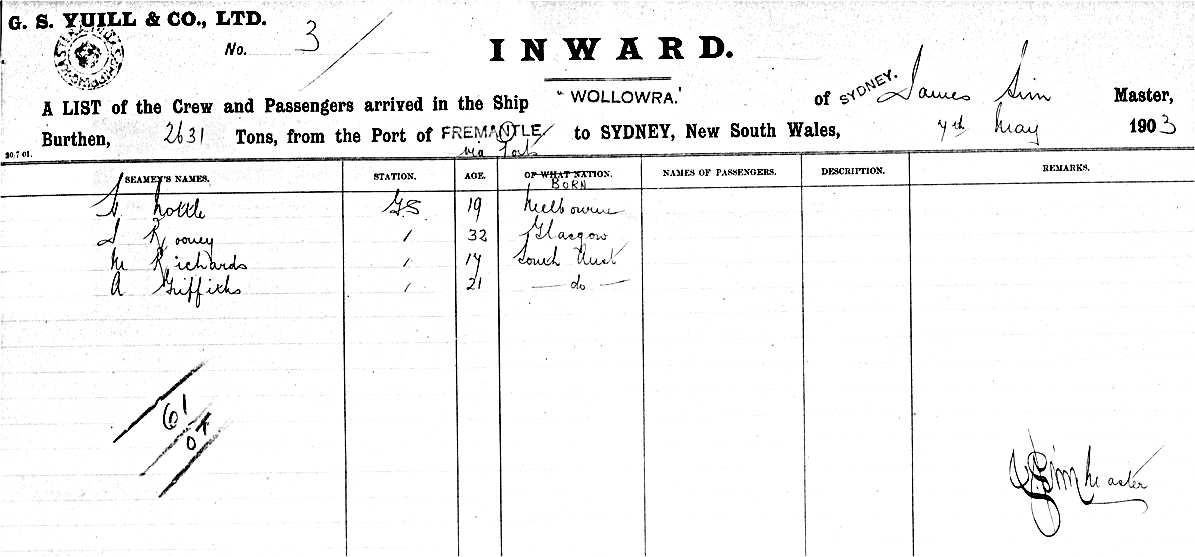 G. S. YUILL & CO., LTD.
No. 3
INWARD.
A LIST of the Crew and Passengers arrived in the Ship "WOLLOWRA." of SYDNEY. James Sim Master,
Burthen, 2631 Tons, from the Port of FREMANTLE/ to SYDNEY, New South Wales, 7th May 1903
via Ports
20.7.01.
SEAMEN'S NAMES. STATION. AGE. OF WHAT NATION. NAMES OF PASSENGERS. DESCRIPTION. REMARKS.
BORN
Nottle GS 19 Melbourne
Rooney / 32 Glasgow
M Richards / 17 South Aust
A Griffiths / 21 — do —
61
Sim Master